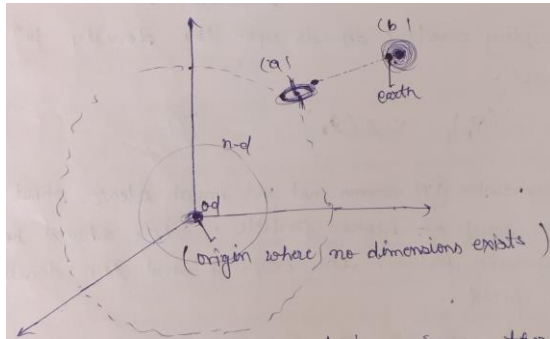 (b)
(a)
earth
n-d
o-d
(origin where no dimensions exists)